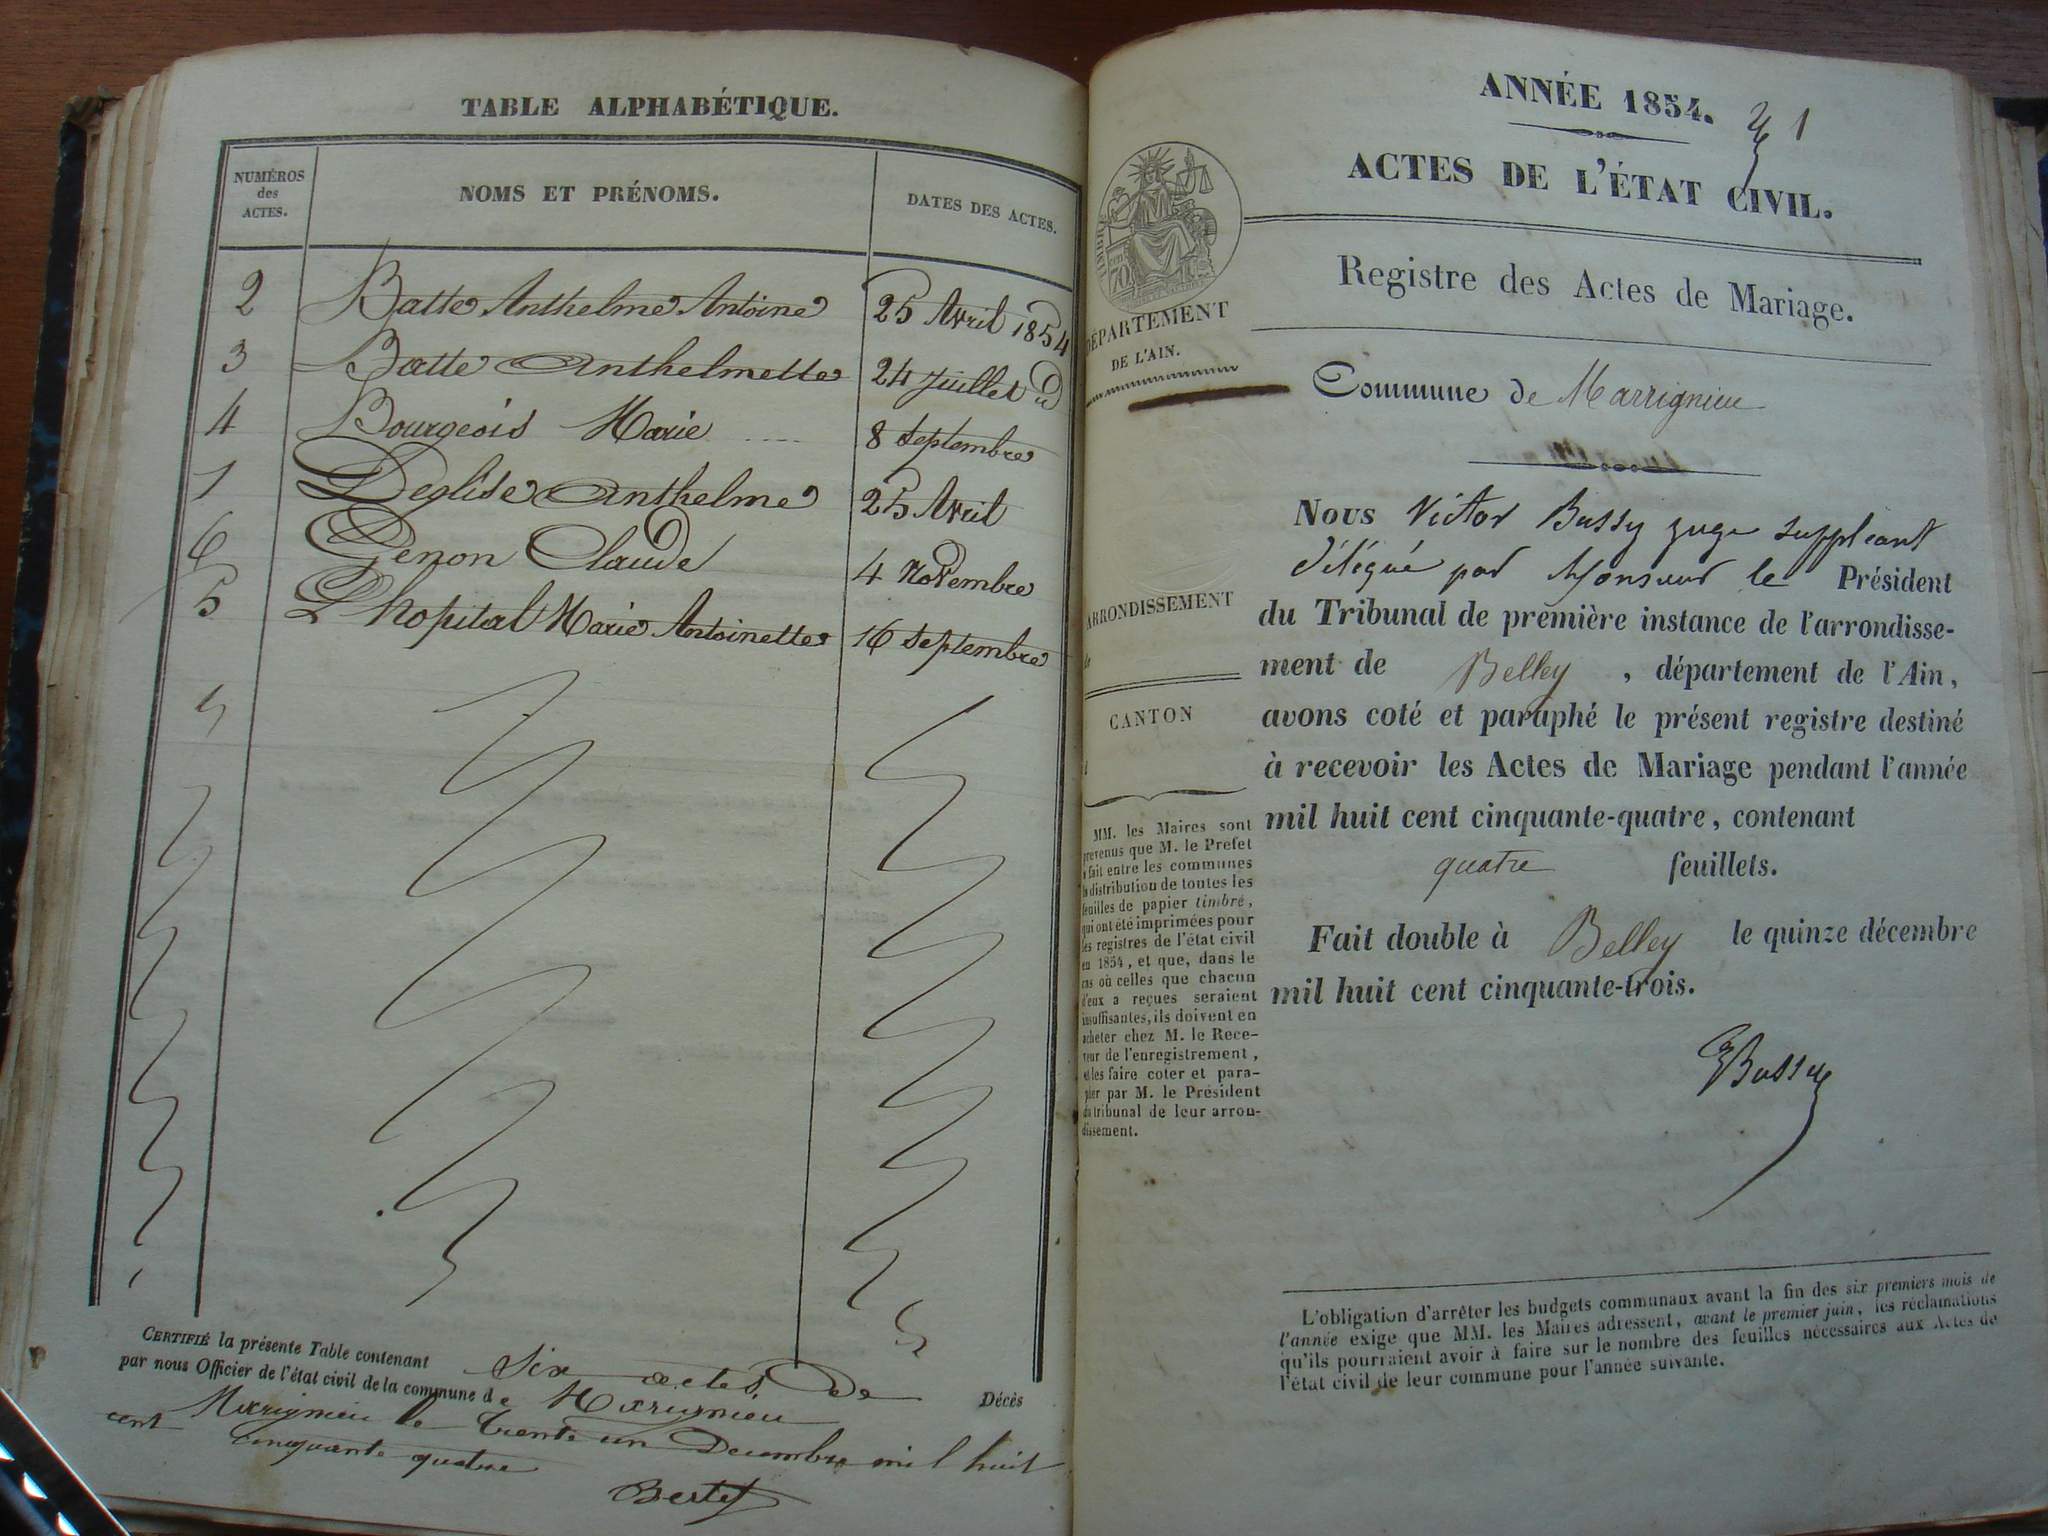 TABLE ALPHABÉTIQUE.
NUMÉROS
des
ACTES.
NOMS ET PRÉNOMS.
DATES DES ACTES.
2 Batte Anthelme Antoine 25 Avril 1854
3 Batte Anthelmette 24 Juillet d
4 Bourgeois Marie 8 Septembre
1 Deglise Anthelme 25 Avril
6 Genon Claude 4 Novembre
5 L'hopital Marie Antoinette 16 Septembre
CERTIFIÉ la présente Table contenant six actes de Décès
par nous Officier de l'état civil de la commune de Marignieu
Marignieu le trente un Decembre mil huit
cent cinquante quatre
Bertet
ANNÉE 1854.
1
ACTES DE L'ÉTAT CIVIL.
TIMBRE
70
Registre des Actes de Mariage.
DÉPARTEMENT
DE L'AIN.
Commune de Marrignieu
Nous Victor Bussy juge suppléant
délégué par Monsieur le Président
du Tribunal de première instance de l'arrondisse-
ment de Belley, département de l'Ain,
avons coté et paraphé le présent registre destiné
à recevoir les Actes de Mariage pendant l'année
mil huit cent cinquante-quatre, contenant
quatre feuillets.
Fait double à Belley le quinze décembre
mil huit cent cinquante-trois.
Bussy
ARRONDISSEMENT
de
CANTON
MM. les Maires sont
prévenus que M. le Préfet
a fait entre les communes
la distribution de toutes les
feuilles de papier timbré,
qui ont été imprimées pour
les registres de l'état civil
en 1854, et que, dans le
cas où celles que chacun
d'eux a reçues seraient
insuffisantes, ils doivent en
acheter chez M. le Rece-
veur de l'enregistrement,
et les faire coter et para-
pher par M. le Président
du tribunal de leur arron-
dissement.
L'obligation d'arrêter les budgets communaux avant la fin des six premiers mois de
l'année exige que MM. les Maires adressent, avant le premier juin, les réclamations
qu'ils pourraient avoir à faire sur le nombre des feuilles nécessaires aux Actes de
l'état civil de leur commune pour l'année suivante.